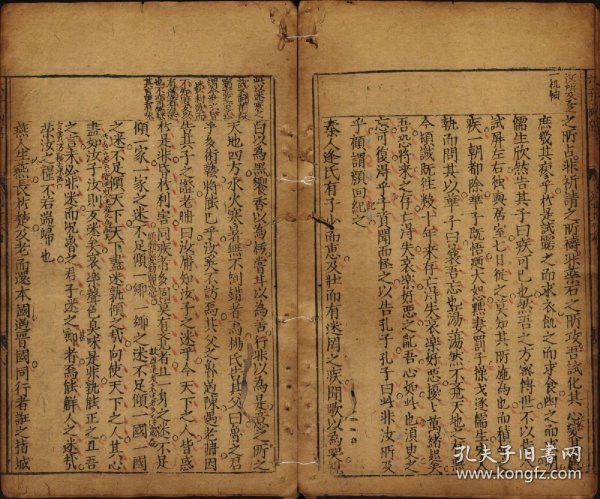 一机軸
之所占非祈請之所禱非藥石之所攻吾試化其心變其慮
庶幾其瘳乎於是試露之而求衣飢之而求食幽之而求明
儒生欣然告其子曰疾可已也然吾之方密傳世不以告人
試屏左右獨與居室七日從之莫知其所施為也而積年之
疾一朝都除華子既悟迺大怒黜妻罰子操戈逐儒生宋人
執而問其以華子曰曩吾忘也蕩蕩然不覺天地之有無
今頓識既往數十年來存亡得失哀樂好惡擾擾萬緒起矣
吾恐將來之存亡得失哀樂好惡之亂吾心如此也須臾之
忘可復得乎子貢聞而怪之以告孔子孔子曰此非汝所及
乎顧謂顏回紀之
秦人逢氏有子少而惠及壯而有迷罔之疾聞歌以為哭視
白以為黑饗香以為朽嘗甘以為苦行非以為是意之所之
天地四方水火寒暑無不倒錯者焉楊氏告其父曰魯之君
子多術藝將能已乎汝奚不訪焉其父之魯過陳遇老聃因
告其子之證老聃曰汝庸知汝子之迷乎今天下之人皆惑
於是非昏於利害同疾者多固莫有覺者且一身之迷不足
傾一家一家之迷不足傾一鄉一鄉之迷不足傾一國一國
之迷不足傾天下天下盡迷孰傾之哉向使天下之人其心
盡如汝子汝則反迷矣哀樂聲色臭味是非孰能正之且吾
之言未必非迷而況魯之君子迷之郵者焉能解人之迷哉
榮汝之糧不若遄歸也
燕人生於燕長於楚及老而還本國過晉國同行者誑之指城
孔夫子旧书网
www.kongfz.com